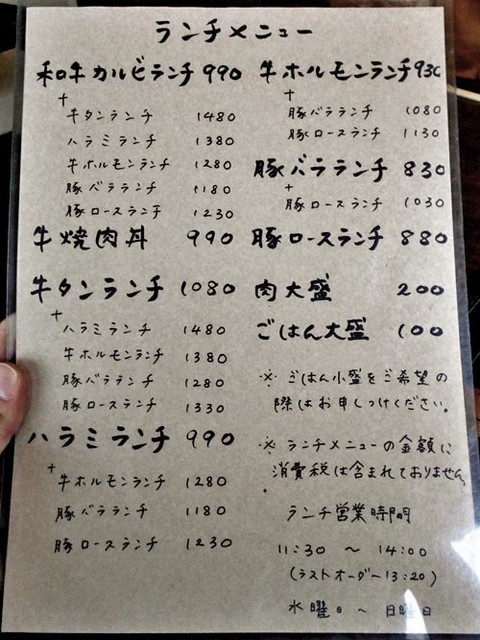 ランチメニュー
和牛カルビランチ 990
+
牛タンランチ 1480
ハラミランチ 1380
牛ホルモンランチ 1280
豚バラランチ 1180
豚ロースランチ 1230
牛焼肉丼 990
牛タンランチ 1080
+
ハラミランチ 1480
牛ホルモンランチ 1380
豚バラランチ 1280
豚ロースランチ 1330
ハラミランチ 990
+
牛ホルモンランチ 1280
豚バラランチ 1180
豚ロースランチ 1230
牛ホルモンランチ 930
+
豚バラランチ 1080
豚ロースランチ 1130
豚バラランチ 830
+
豚ロースランチ 1030
豚ロースランチ 880
肉大盛 200
ごはん大盛 100
※ ごはん小盛をご希望の
際はお申しつけください。
※ ランチメニューの金額に
消費税は含まれておりません。
ランチ営業時間
11:30 〜 14:00
(ラストオーダー13:20)
水曜日 〜 日曜日